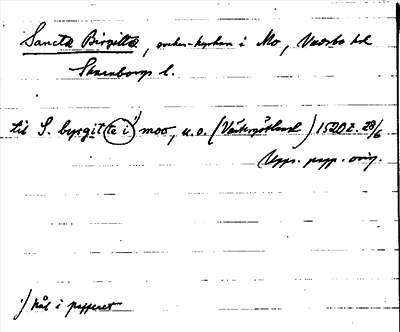 Sancta Birgitta, socken-kyrkan i Mo, Vadsbo hd
Skaraborgs l.
til S. byrgit(te i)¹⁾ moo, u.o. (Västergötland) 1520 2. 28/6
Upps. papp. orig.
¹⁾ hål i papperet